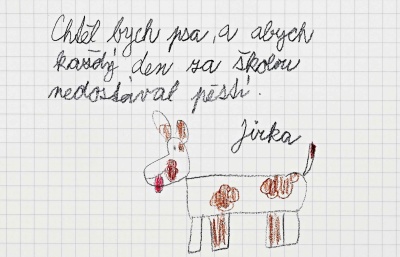 Chtěl bych psa, a abych
každý den za školou
nedostával pěstí.
Jirka